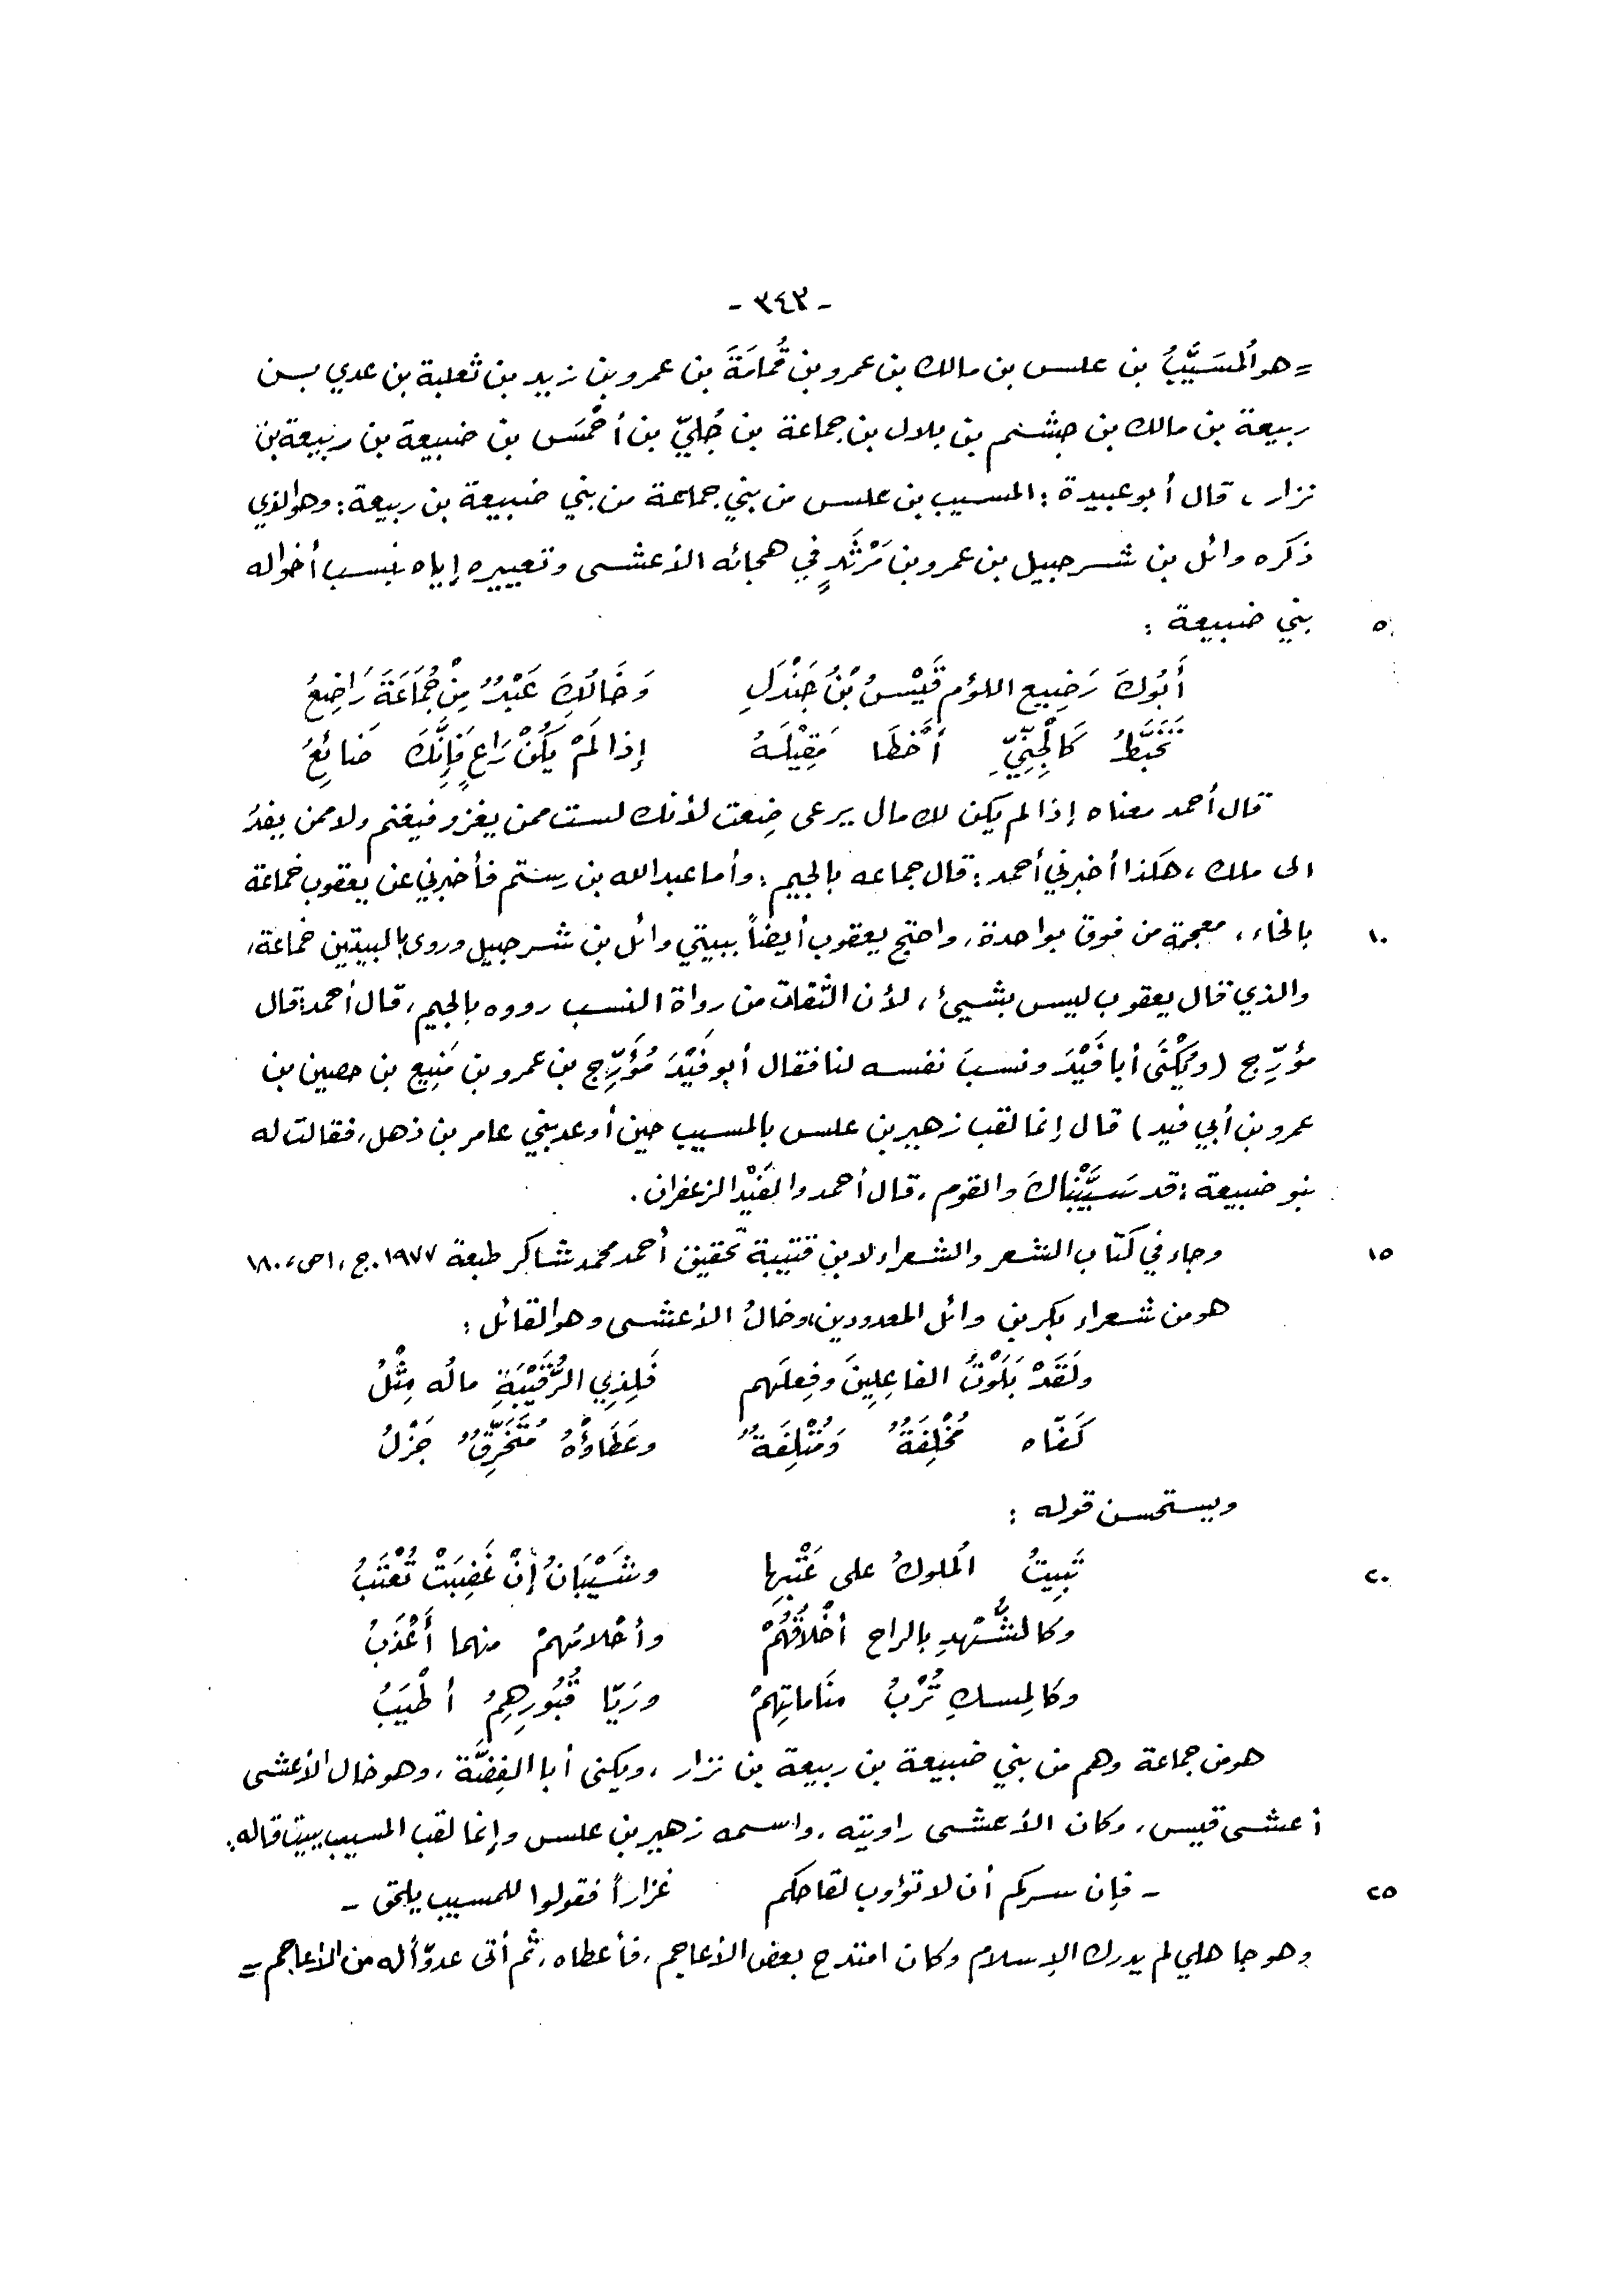 - ٣٤٣ -
= هو المُسَيَّبُ بن علس بن مالك بن عمرو بن قُمامَةَ بن عمرو بن زيد بن ثعلبة بن عدي بن
ربيعة بن مالك بن جشم بن بلال بن جماعة بن جُليّ بن أحْمَسَ بن ضبيعة بن ربيعة بن
نزار ، قال أبو عبيدة : المسيب بن علس من بني جماعة من بني ضبيعة بن ربيعة : وهو الذي
ذكره وائل بن شرحبيل بن عمرو بن مَرْثَدٍ في هجائه الأعشى وتعييره إياه بنسب أخواله
٥ بني ضبيعة :
أَبُوكَ رَضِيع اللؤم قَيْسُ بْنُ جَنْدَلِ وَخَالُكَ عَبْدٌ مِنْ جُمَاعَةَ رَاضِعُ
تَخَبَّطُ كَالْجِنِّيِّ أَخْطَا مَقِيْلَهُ إذا لَمْ يَكُنْ رَاعٍ فَإِنَّكَ ضَائِعُ
قال أحمد معناه إذا لم يكن لك مال يرعى ضِعت لأنك لست ممن يغزو فيغنم ولا ممن يفدُ
الى ملك ، هكذا أخبرني أحمد : قال جماعه بالجيم : وأما عبدالله بن رستم فأخبرني عن يعقوب خماعة
١٠ بالخاء ، معجمة من فوق بواحدة ، واحتج يعقوب أيضاً ببيتي وائل بن شرحبيل وروى بالبيتين خماعة ،
والذي قال يعقوب ليس بشيئ ، لأن الثقات من رواة النسب رووه بالجيم ، قال أحمد : قال
مؤرِّج (ويُكْنَى أبا فَيْدَ ونسبَ نفسه لنا فقال أبو فَيْدَ مُؤَرِّج بن عمرو بن مَنِيع بن حصين بن
عمرو بن أبي فيد) قال إنما لقب زهير بن علس بالمسيب حين أوعد بني عامر بن ذهل ، فقالت له
بنو ضبيعة : قد سَيَّبْنَاكَ والقوم ، قال أحمد والفَيْد الزعفران .
١٥ وجاء في كتاب الشعر والشعراء لابن قتيبة تحقيق أحمد محمد شاكر طبعة ١٩٧٧ . ج ، ١ ص ، ١٨٠
هو من شعراء بكر بن وائل المعدودين ، وخالُ الأعشى وهو القائل :
ولَقَدْ بَلَوْتُ الفاعِلِينَ وفِعلَهم فَلِذِي الرُّقَيْبَةِ مالُه مِثْلُ
كَفّاه مُخْلِفَةٌ وَمُتْلِفَةٌ وعَطَاؤُهُ مُتَخَرِّقٌ جَزْلُ
ويستحسن قوله :
٢٠ تَبِيتُ المُلوكُ على عَتْبِها وشَيْبَانُ إنْ غَضِبَتْ تُعْتَبُ
وكالشُّهْدِ بالراح أخْلَاقُهُمْ وأحْلامُهمْ منهما أَعْذَبُ
وكالمِسكِ تُرْبُ منَاماتِهِمْ ورَيّا قُبُورِهِمُ أطْيَبُ
هو من جماعة وهم من بني ضبيعة بن ربيعة بن نزار ، ويكنى أبا الفِضَّة ، وهو خال الأعشى
أعشى قيس ، وكان الأعشى راويته ، واسمه زهير بن علس وإنما لقب المسيب ببيت قاله :
٢٥ - فإن سركم أن لا تؤوب لقاحكم غزاراً فقولوا للمسيب يلحق -
وهو جاهلي لم يدرك الإسلام وكان امتدح بعض الأعاجم ، فأعطاه ، ثم أتى عدوّاً له من الأعاجم =